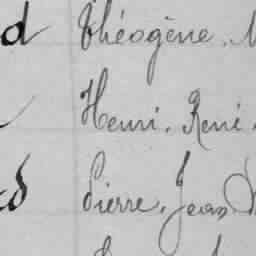 d Théogène. 
Henri. René.
Pierre. Jean